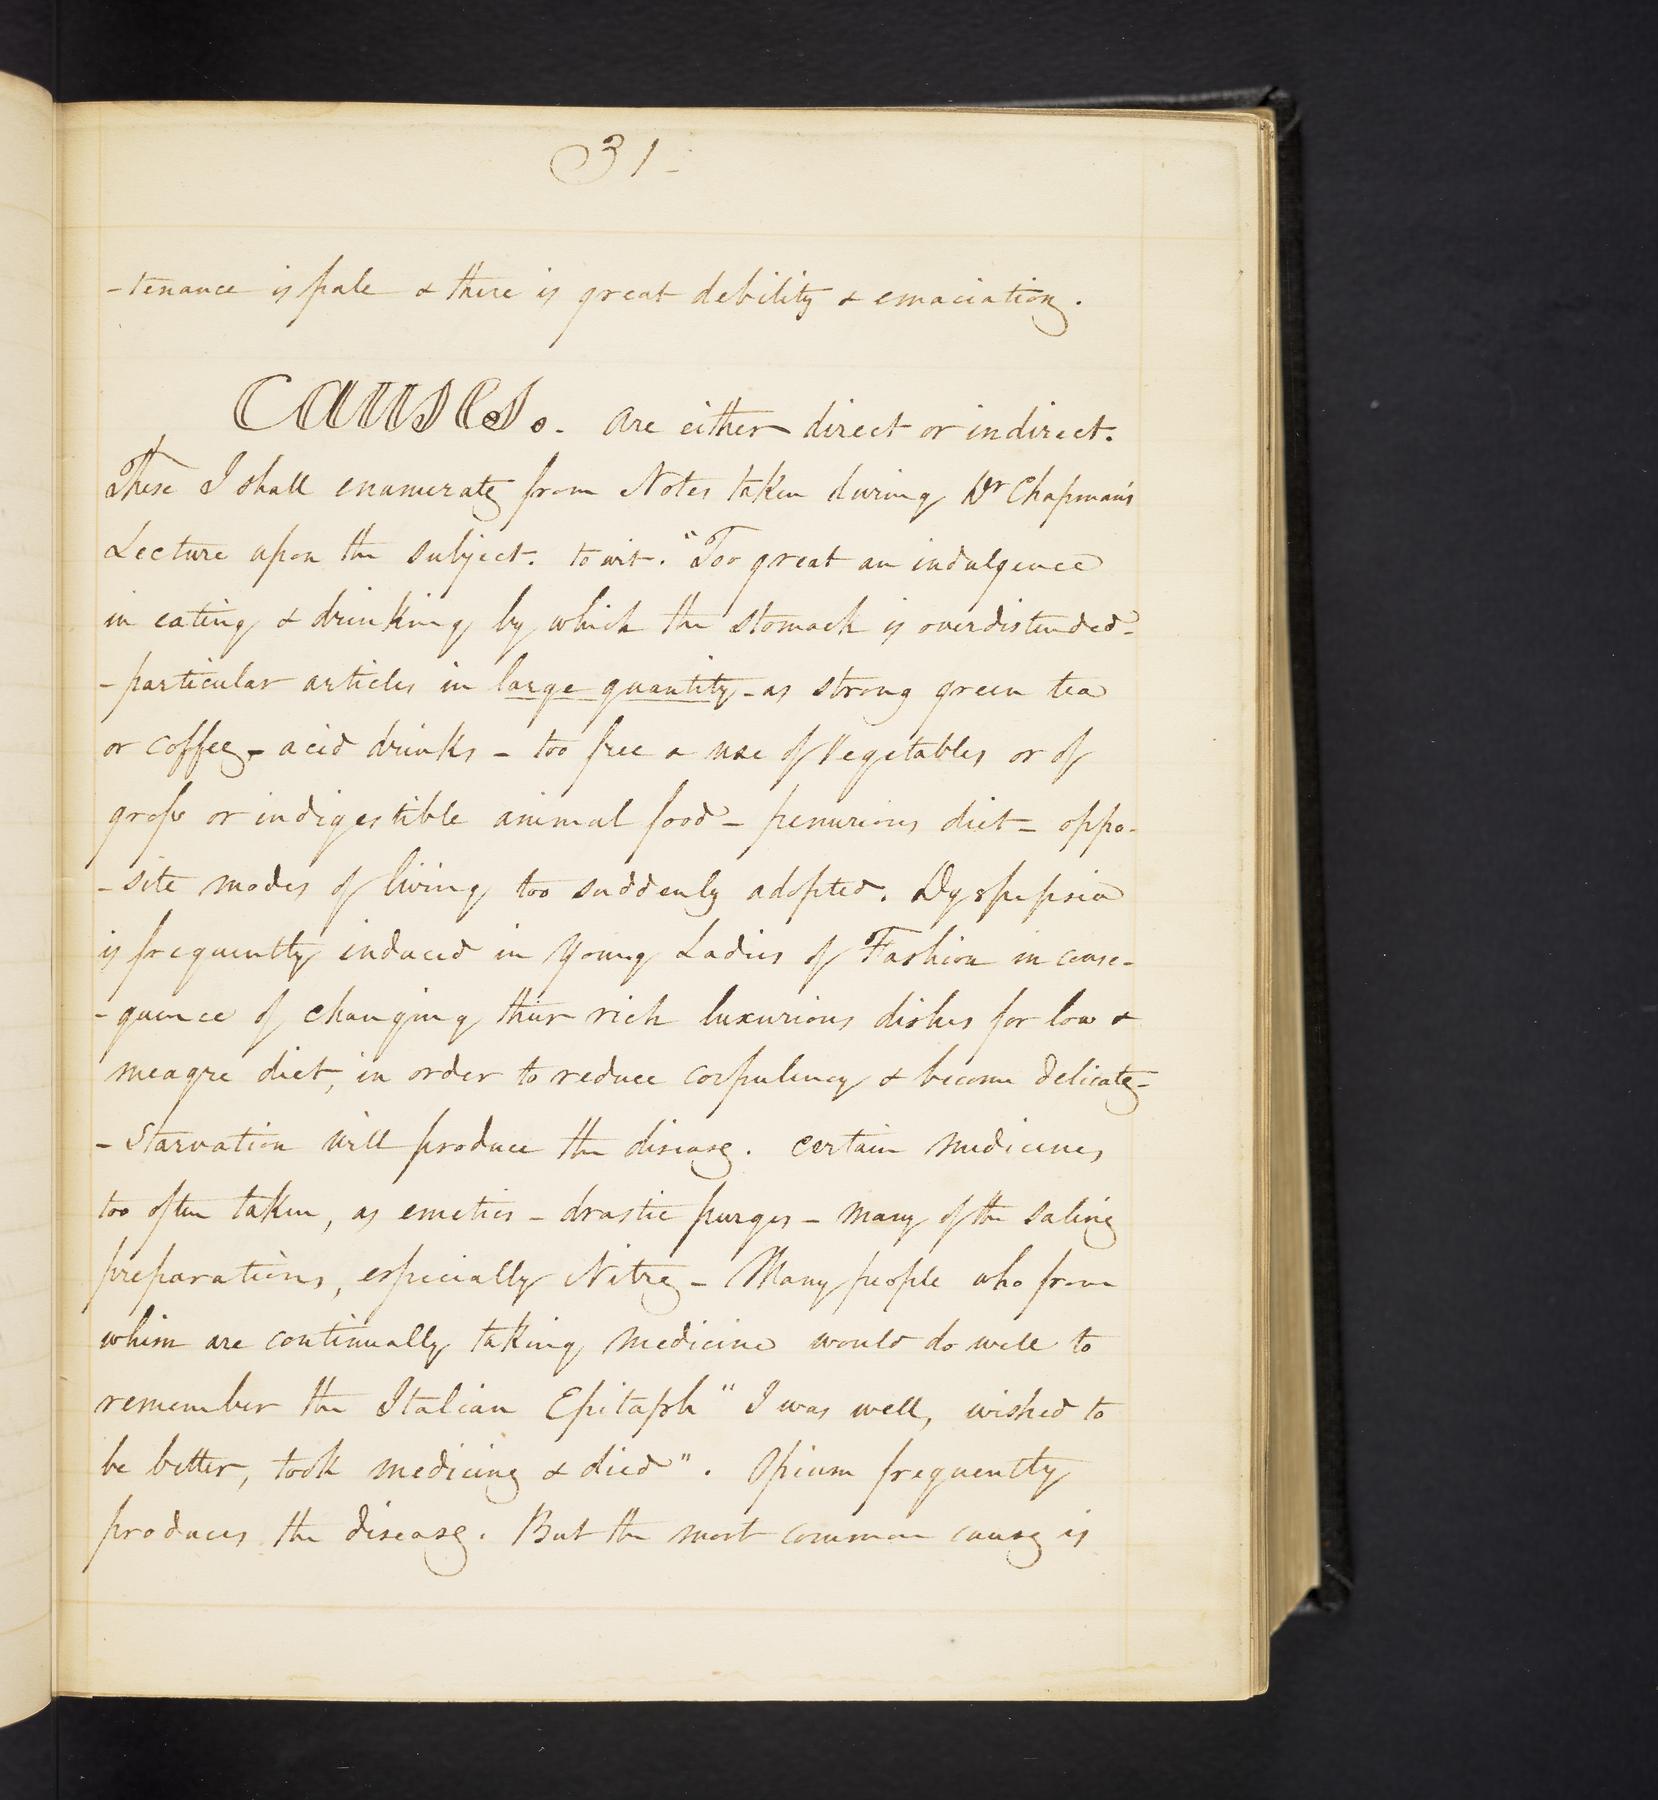 31-
-tenance is pale & there is great debility & emaciation.
Causes.- are either direct or indirect.
These I shall enumerate from Notes taken during Dr Chapman's
Lecture upon the subject. to wit. "Too great an indulgence
in eating & drinking by which the stomach is overdistended-
-particular articles in large quantity - as strong green tea
or coffee - acid drinks - too free a use of Vegetables or of
gross or indigestible animal food - penurious diet - oppo-
-site modes of living too suddenly adopted. Dyspepsia
is frequently induced in Young Ladies of Fashion in conse-
-quence of changing their rich luxurious dishes for low &
meagre diet, in order to reduce corpulency & become delicate-
-Starvation will produce the disease. certain medicines
too often taken, as emetics - drastic purges - many of the saline
preparations, especially Nitre - Many people who from
whim are continually taking medicine would do well to
remember the Italian Epitaph "I was well, wished to
be better, took medicine & died". Opium frequently
produces the disease. But the most common cause is